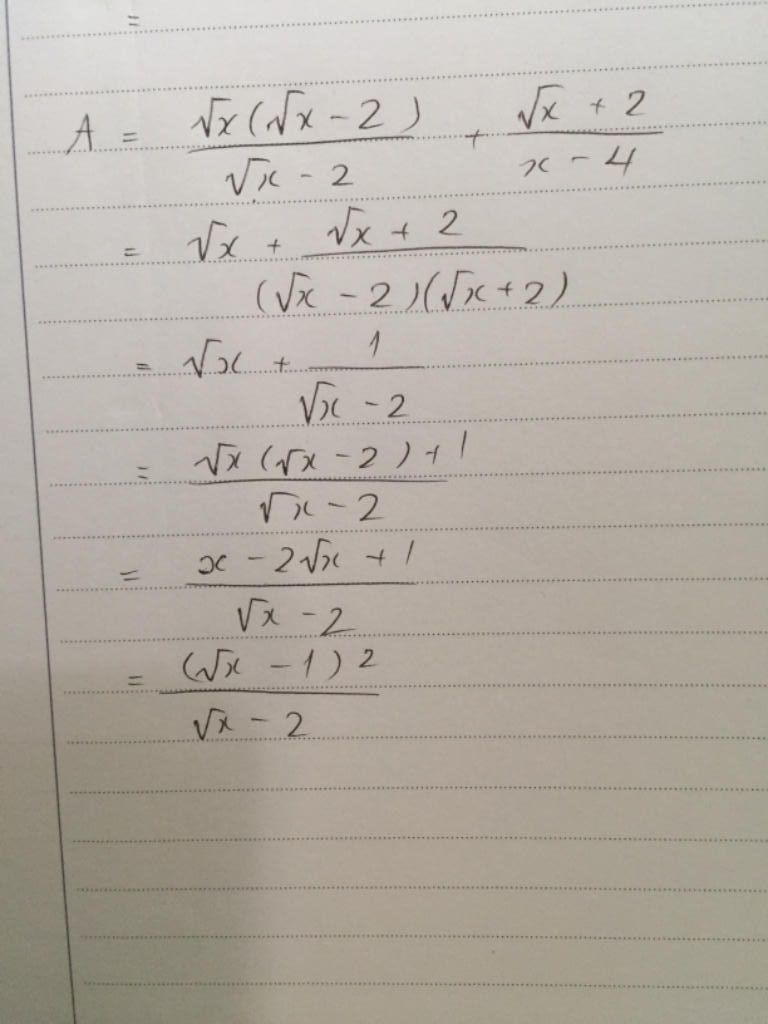 =
A = √x(√x - 2) / √x - 2 + √x + 2 / x - 4
= √x + √x + 2 / (√x - 2)(√x + 2)
= √x + 1 / √x - 2
= √x (√x - 2) + 1 / √x - 2
= x - 2√x + 1 / √x - 2
= (√x - 1)² / √x - 2